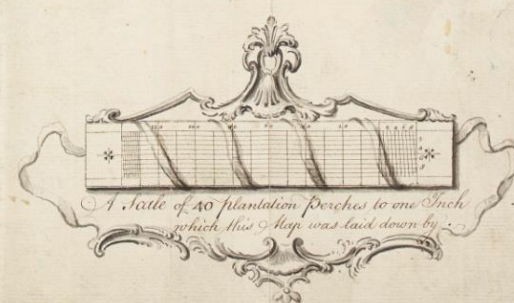 A Scale of 40 plantation Perches to one Inch
which this Map was laid down by